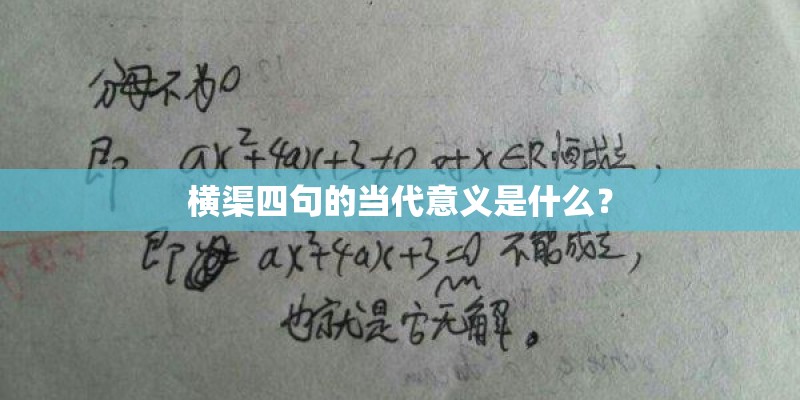 分母不为0
即 ax²+4ax+3≠0 对x∈R恒成立,
横渠四句的当代意义是什么？
即 ax²+4ax+3=0 不能成立,
也就是它无解。